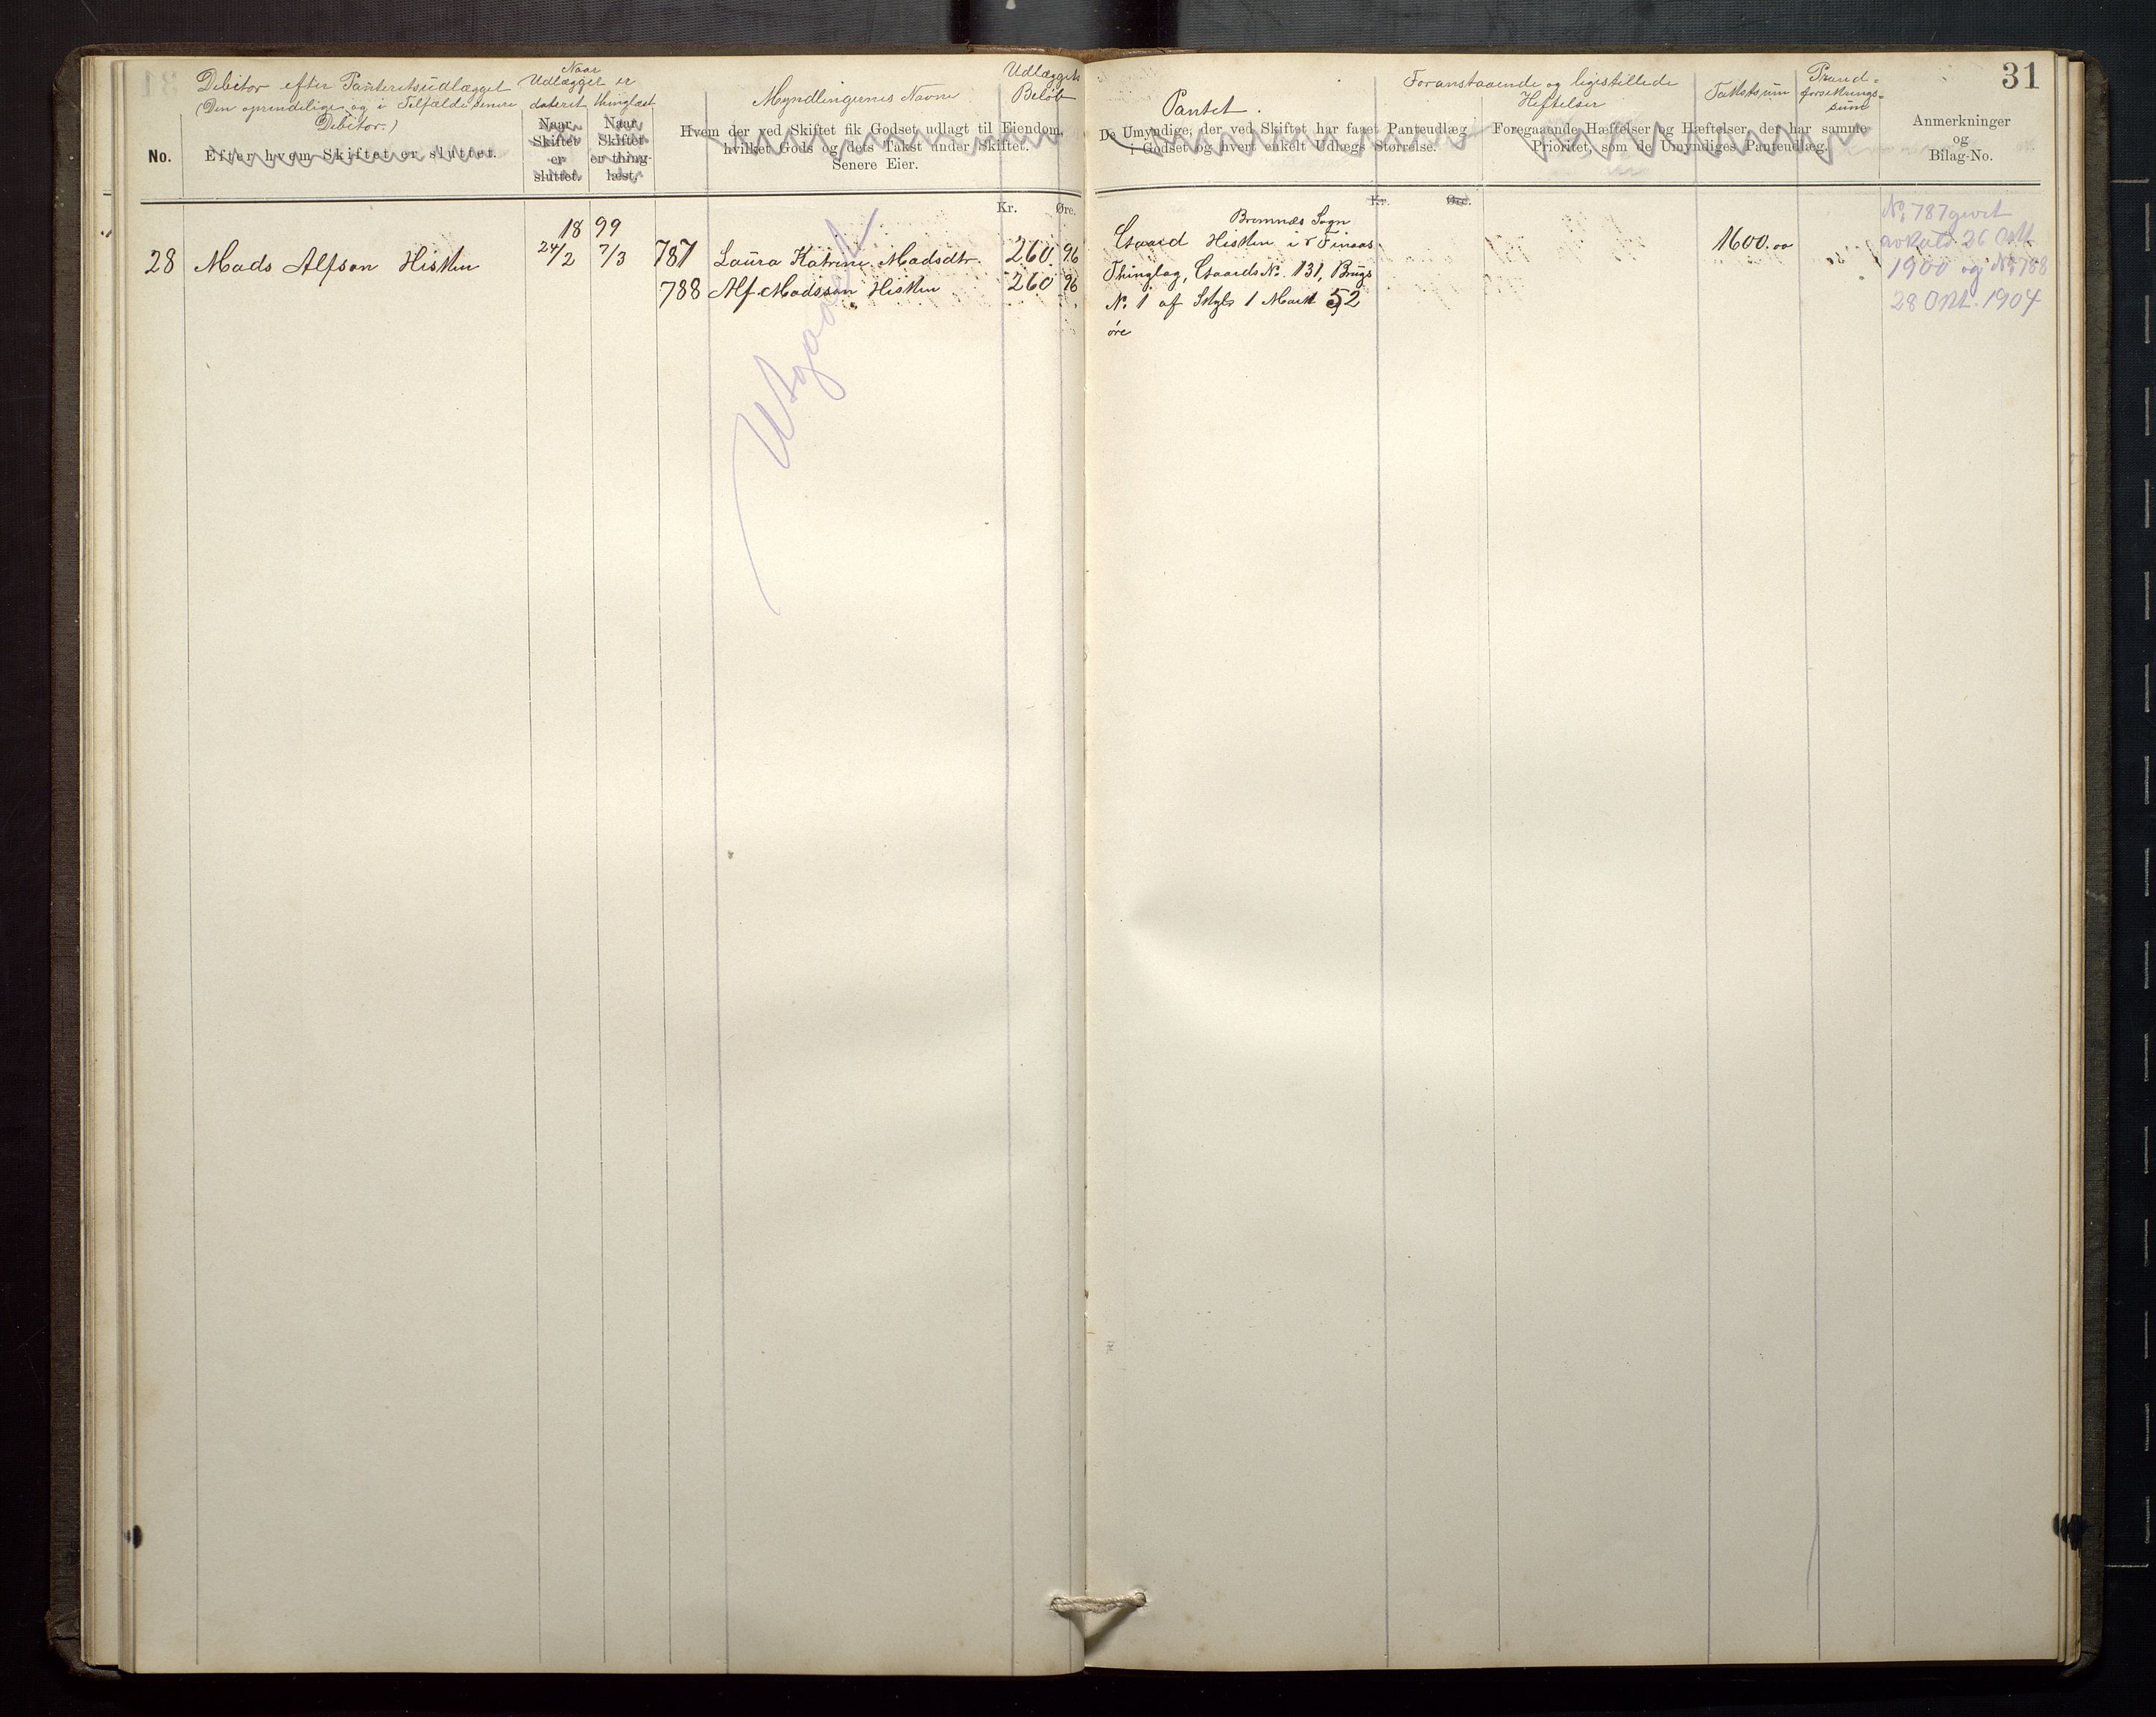 31
Debitor efter Panteretsudlægget
(Den oprindelige og i Tilfælde senere
Debitor.)
No.
Efter hvem Skiftet er sluttet.
Naar
Udlægget er
dateret
thinglæst
Naar
Skiftet
er
sluttet.
Naar
Skiftet
er thing-
læst.
Myndlingernes Navne
Hvem der ved Skiftet fik Godset udlagt til Eiendom,
hvilket Gods og dets Takst under Skiftet.
Senere Eier.
Udlæggets
Beløb
Kr. Øre.
Pantet.
De Umyndige, der ved Skiftet har faaet Panteudlæg
i Godset og hvert enkelt Udlægs Størrelse.
Kr. Øre.
Foranstaaende og ligestillede
Heftelser
Foregaaende Hæftelser og Hæftelser, der har samme
Prioritet, som de Umyndiges Panteudlæg.
Takstsum
Brand-
forsikrings-
sum
Anmerkninger
og
Bilag-No.
1899
28 Mads Alfson Hisken 24/2 7/3 787 Laura Katrine Madsdtr. 260. 96
788 Alf Madsson Hisken 260 96
Utgaaet
Bremnæs Sogn
Gaard Hisken i Finaas
Thinglag, Gaards No. 131, Brugs
No. 1 af Skyld 1 Mark 52
øre
1600.00
No. 787 givet
avkald 26 Okt.
1900 og No. 788
28 Okt. 1904